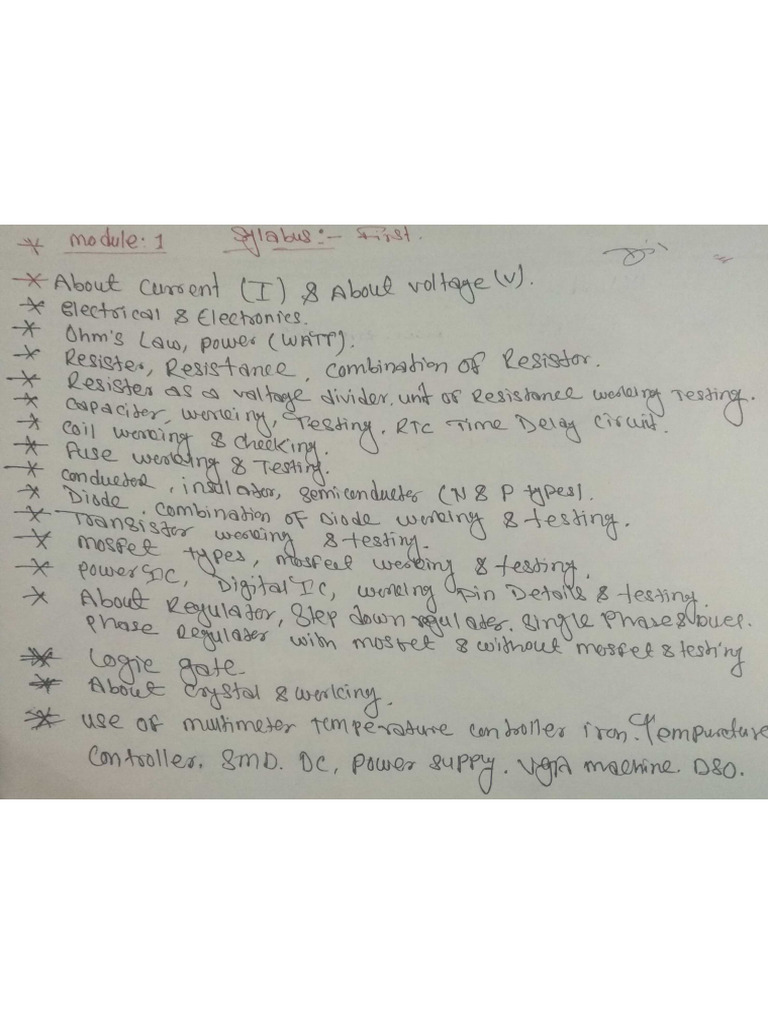 * Module: 1 Syllabus:- First.
* About Current (I) & About voltage (V).
* Electrical & Electronics.
* Ohm's Law, power (WATT).
* Resister, Resistance, Combination OF Resistor.
* Resister as a voltage divider, unit of Resistance working Testing.
* Capaciter, working, Testing, RTC Time Delay Circuit.
* Coil working & checking.
* Fuse working & Testing.
* Conducter, insulator, Semiconducter (N & P types).
* Diode, Combination of Diode working & testing.
* Transistor working & testing.
* mosfet types, mosfeet working & testing.
* Power IC, Digital IC, working Pin Details & testing.
* About Regulator, Step down regulater, single Phase & Duel
phase Regulater with mosfet & without mosfet & testing
* Logic gate
* About Crystal & working.
* use of multimeter temperature controller iron. Tempurature
Controller. SMD. DC, power supply. VGA machine. DSO.